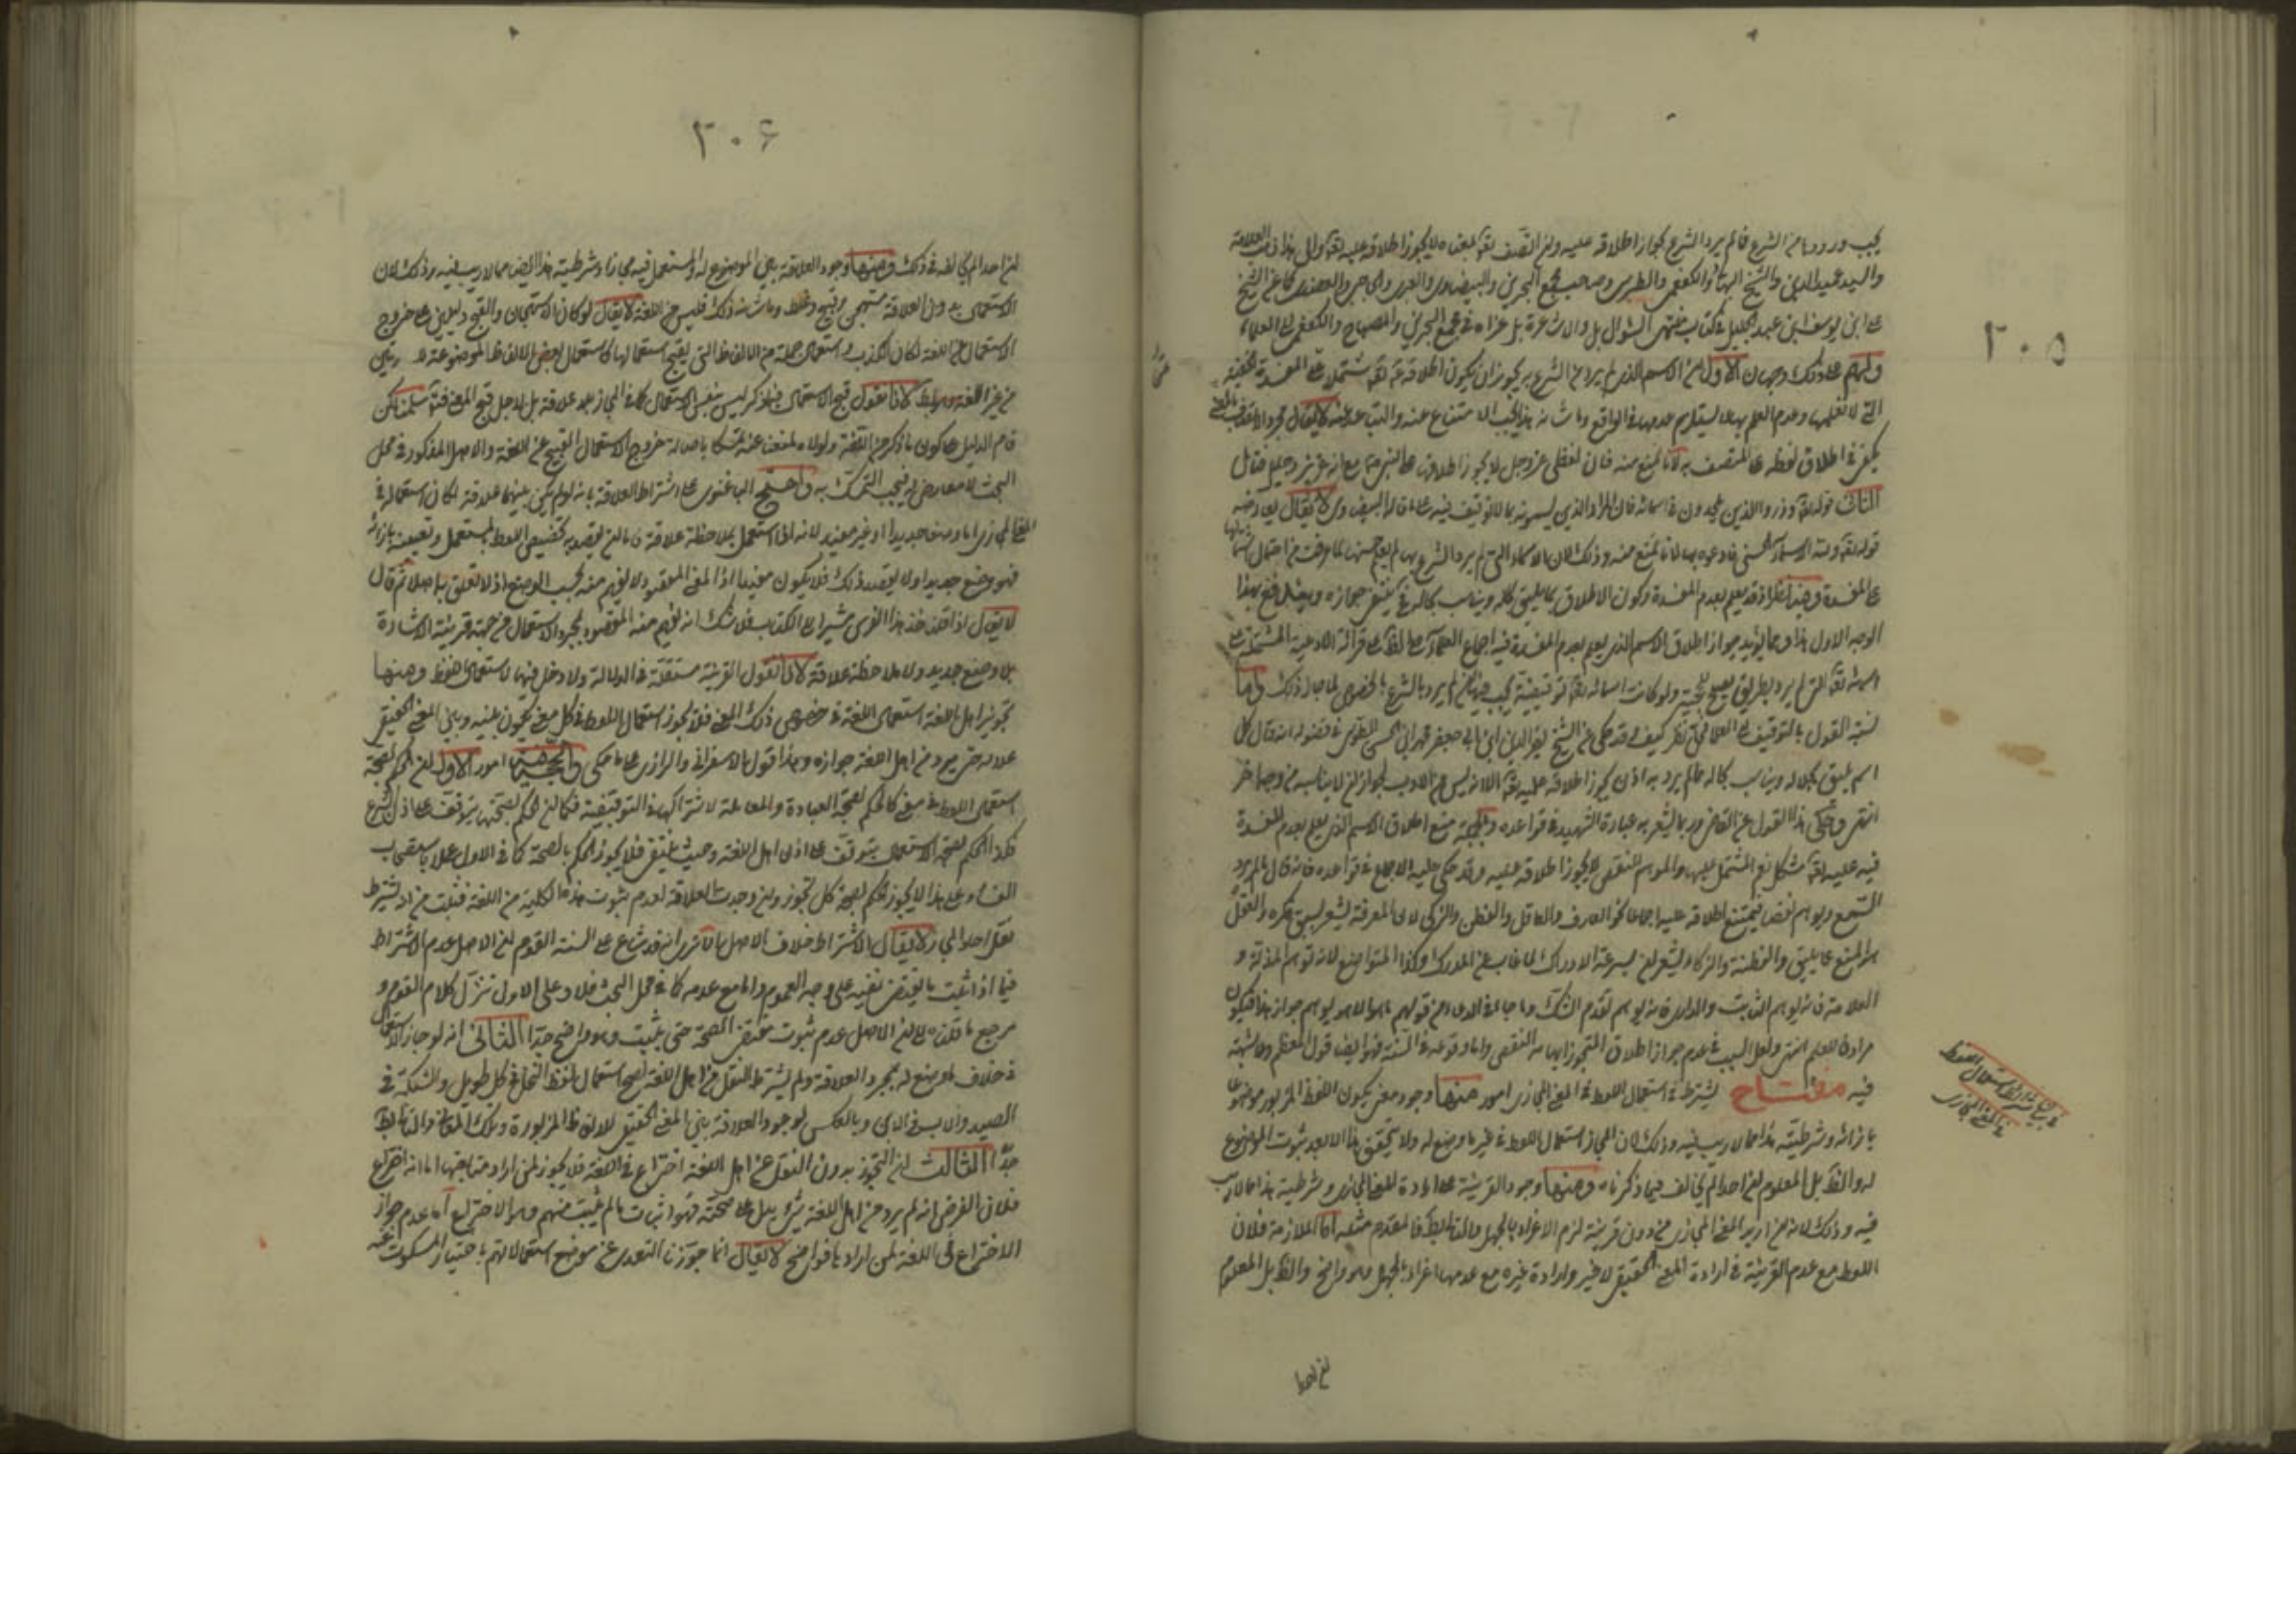 ٢٠٥
يجب ورودها من الشرع فالم يرد الشرع بجواز اطلاقه عليه وان اتصف تعالى بمعناه لا يجوز اطلاقه عليه تعالى والى هذا ذهب العلامة
والسيد عميد الدين والشيخ البهائى والكفعمى والطبرسى وصاحب مجمع البحرين والبيضاوى والعبرى والعضدى كما عن الشيخ
على ابن يوسف ابن عبد الجليل فى كتاب منتهى السؤال بل والاشاعرة بل عزاه فى مجمع البحرين والمصباح والكفعمى الى العلماء
ولهم على ذلك وجهان الاول ان الاسم الذى لم يرد من الشرع به يجوز ان يكون اطلاقه عليه تعالى مشتملا على المفسدة الخفية
التى لا نعلمها وعدم العلم بها لا يستلزم عدمها فى الواقع وما شانه هذا يجب الامتناع عنه والتباعد منه لا يقال مجرد الاتصاف بالمعنى
يكفى فى اطلاق لفظه على المتصف به لانا نمنع منه فان لفظى عز وجل لا يجوز اطلاقه على النبى ص مع انه عزيز وجليل فتامل
الثانى قوله تعالى وذروا الذين يلحدون فى اسمائه فان المراد الذين يسمونه بما لا توقيف فيه على ما قاله البيضاوى لا يقال يعارضه
قوله تعالى ولله الاسماء الحسنى فادعوه بها لانا نمنع منه وذلك لان الاسماء التى لم يرد الشرع بها لم يعلم حسنها لما عرفت من احتمال اشتمالها
على المفسدة وفيه نظر اذ قد يعلم بعدم المفسدة وكون الاطلاق مما يليق بجلاله ويناسب كماله فينبغى جوازه وبمثل يدفع بهذا
الوجه الاول هذا ومما يؤيد جواز اطلاق الاسم الذى يعلم بعدم المفسدة فيه اجماع العلماء على الظاهر على قرائة الادعية المشتملة على
اسمائه تعالى التى لم يرد بطريق صحيح حجية ولو كانت اسمائه تعالى توقيفية يجب فيها ان يرد بالشرع بالخصوص لما جاز ذلك واما
نسبة القول بالتوقيف الى العلماء ففى نظر كيف وقد حكى عن الشيخ نصير الدين ابن ابى جعفر محمد ابن الحسن الطوسى فى فصوله انه قال كل
اسم يليق بجلاله ويناسب كماله مما لم يرد به اذن يجوز اطلاقه عليه تعالى الا انه ليس من الادب لجواز ان لا يناسبه من وجه اخر
انتهى وحكى هذا القول عن القاضى وربما يشعر به عبارة الشهيد فى قواعده وبالجملة منع اطلاق الاسم الذى يعلم بعدم المفسدة
فيه عليه تعالى مشكل نعم المشتمل عليها والموهم للنقص لا يجوز اطلاقه عليه وقد حكى عليه الاجماع فى قواعده فانه قال ما لم يرد
السمع ويوهم نقصا فيمتنع اطلاقه عليه اجماعا نحو العارف والعاقل والفطن والذكى لان المعرفة يشعر بسبق فكره والعقل
هو المنع عما يليق والفطنة والذكاء يشعر ان بسرعة الادراك لما غاب عن المدرك وكذا المتواضع لانه توهم المذلة و
العلامة فانه يوهم التانيث والدارى فانه يوهم تقدم الشك وما جاء فى الدعاء من قولهم يا هو يا من لا هو الا هو يوهم جواز هذا فيكون
مرادفا للعلم انتهى ولعل السبب فى عدم جواز اطلاق المتجوز ايهامه النقص واما وقوعه فى السنة فهو ايضا قول المعظم وما شبهته
فيه مفتاح يشترط فى استعمال اللفظ فى المعنى المجازى امور منها وجود معنى يكون اللفظ المزبور موضوعا
بازائه وشرطيته هذا مما لا ريب فيه وذلك لان المجاز استعمال اللفظ فى غير ما وضع له ولا يتحقق هذا الا بعد ثبوت الموضوع
له والظاهر بل المعلوم ان احدا لم يخالف فيما ذكرناه ومنها وجود القرينة على ارادة المعنى المجازى وشرطية هذا مما لا ريب
فيه وذلك لانه متى اريد المعنى المجازى من دون قرينة لزم الاغراء بالجهل والتالى باطل فالمقدم مثله اما الملازمة فلان
اللفظ مع عدم القرينة فى ارادة المعنى الحقيقى لا غير وارادة غيره مع عدمها اغراء بالجهل وهو واضح والظاهر بل المعلوم
فى بيان شرائط استعمال اللفظ
فى المعنى المجازى
ان احدا
٢٠۶
ان احدا لم يخالف فى ذلك ومنها وجود العلاقة بين الموضوع له والمستعمل فيه مجازا وشرطيته هذا ايضا مما لا ريب فيه وذلك لان
الاستعمال بدون العلاقة مستهجن وقبيح وغلط وما شانه ذلك فليس من اللغة لا يقال لو كان الاستهجان والقبح دليلين على خروج
الاستعمال عن اللغة لكان الكذب واستعمال جملة من الالفاظ التى يقبح استعمالها كاستعمال بعض الالفاظ الموضوعة لا ريب
من غير اللغة وهو باطل لانا نقول قبح الاستعمال فيما ذكر ليس بنفس الاستعمال كما فى المجاز بلا علاقة بل لاجل قبح المعنى فتأمل سلمنا لكن
قام الدليل على كون ما ذكر من اللغة ولولاه لمنعنا عنه تمسكا باصالة خروج الاستعمال القبيح عن اللغة والاصل المذكور فى محل
البحث لا معارض له فيجب التمسك به واحتج الباغنوى على اشتراط العلاقة بانه لو لم يكن بينهما علاقة لكان استعماله فى
المعنى المجازى اما وضعا جديدا او غير مفيد لانه اذا استعمل بلا ملاحظة علاقة فاما ان يقصد به تخصيص اللفظ المستعمل وتعيينه بازائه
فهو وضع جديد او لا يقصد ذلك فلا يكون مفيدا اذ المعنى المقصود لا يفهم منه بحسب الوضع اذ لا تعلق به اصلا ثم قال
لا يقال اذا قلت خذ هذا الفرس مشيرا الى الكتاب فلا شك انه يفهم منه المقصود بمجرد الاستعمال من جهة قرينة الاشارة
بلا وضع جديد ولا ملاحظة علاقة لانا نقول القرينة مستقلة فى الدلالة ولا دخل فيها لاستعمال اللفظ ومنها
تجويز اهل اللغة استعمال اللغة فى خصوص ذلك المعنى فلا يجوز استعمال اللفظ فى كل معنى يكون بينه وبين المعنى الحقيقى
علاقة حتى يرد من اهل اللغة جوازه وهذا قول الاسفراينى والرازى على ما حكى والحجة فيه امور الاول ان الحكم بصحة
استعمال اللفظ فى معنى كالحكم بصحة العبادة والمعاملة لاشتراكهما فى التوقيفية فكما ان الحكم بصحتها يتوقف على اذن الشرع
فكذا الحكم بصحة الاستعمال يتوقف على اذن اهل اللغة وحيث ينتفى فلا يجوز الحكم بالصحة كما فى الاول عملا باستصحاب
الفساد وعلى هذا لا يجوز الحكم بصحة كل تجوز وان وجدت العلاقة لعدم ثبوت هذه الكلية من اللغة فثبت من اذ يشترط
نقل احاد المجاز لا يقال الاشتراط خلاف الاصل لما تقرر انه قد شاع على السنة القوم ان الاصل عدم الاشتراط
فيما اذا ثبت ما يقتضى نفيه على وجه العموم واما مع عدمه كما فى محل البحث فلا وعلى الاول تنزل كلام القوم و
مرجع ما قلناه الى ان الاصل عدم ثبوت مقتضى الصحة حتى يثبت وهو واضح جدا الثانى انه لو جاز الاستعمال
فى خلاف ما وضع له بمجرد العلاقة ولم يشترط النقل من اهل اللغة لصح استعمال لفظ النخلة فى كل طويل والشبكة فى
الصيد والاب فى الابن وبالعكس لوجود العلاقة بين المعنى الحقيقى للالفاظ المزبورة وتلك المعانى والتالى باطل
جدا الثالث ان التجوز بدون النقل من اهل اللغة اختراع فى اللغة فلا يجوز لمن اراد متابعتها اما انه اختراع
فلان الفرض انه لم يرد من اهل اللغة شىء يدل على صحته فهو اثبات ما لم يثبت منهم وهو الاختراع اما عدم جواز
الاختراع فى اللغة لمن اراد بها فواضح لا يقال انما جوزنا التعدى عن موضع استعمالاتهم باعتبار المسكوت عنه